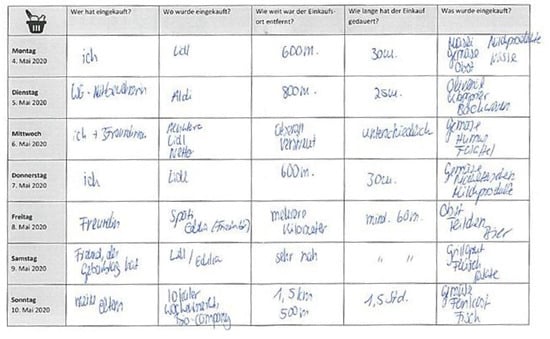 Wer hat eingekauft?
Wo wurde eingekauft?
Wie weit war der Einkaufs-
ort entfernt?
Wie lange hat der Einkauf
gedauert?
Was wurde eingekauft?
Montag
4. Mai 2020
ich
Lidl
600m.
30m.
Gemüse
Obst
Milchprodukte
Dienstag
5. Mai 2020
WG-Mitbewohnerin
Aldi
800m.
25m.
Backwaren
Mittwoch
6. Mai 2020
ich + 3 Freundinnen
Lidl
Netto
überall
verstreut
unterschiedlich
Gemüse
Humus
Falaffel
Donnerstag
7. Mai 2020
ich
Lidl
600m.
30m.
Gemüse
Milchprodukte
Freitag
8. Mai 2020
Freundin
Späti
Edeka
mehrere
Kilometer
mind. 60m.
Obst
Teilchen
Bier
Samstag
9. Mai 2020
Freund, der
Geburtstag hat
Lidl / Edeka
sehr nah
" "
Grillgut
Fleisch
Sonntag
10. Mai 2020
meine Eltern
lokaler
Wochenmarkt,
Bio-Company
1,5km
500m
1,5 Std.
Gemüse
Feinkost
Fisch